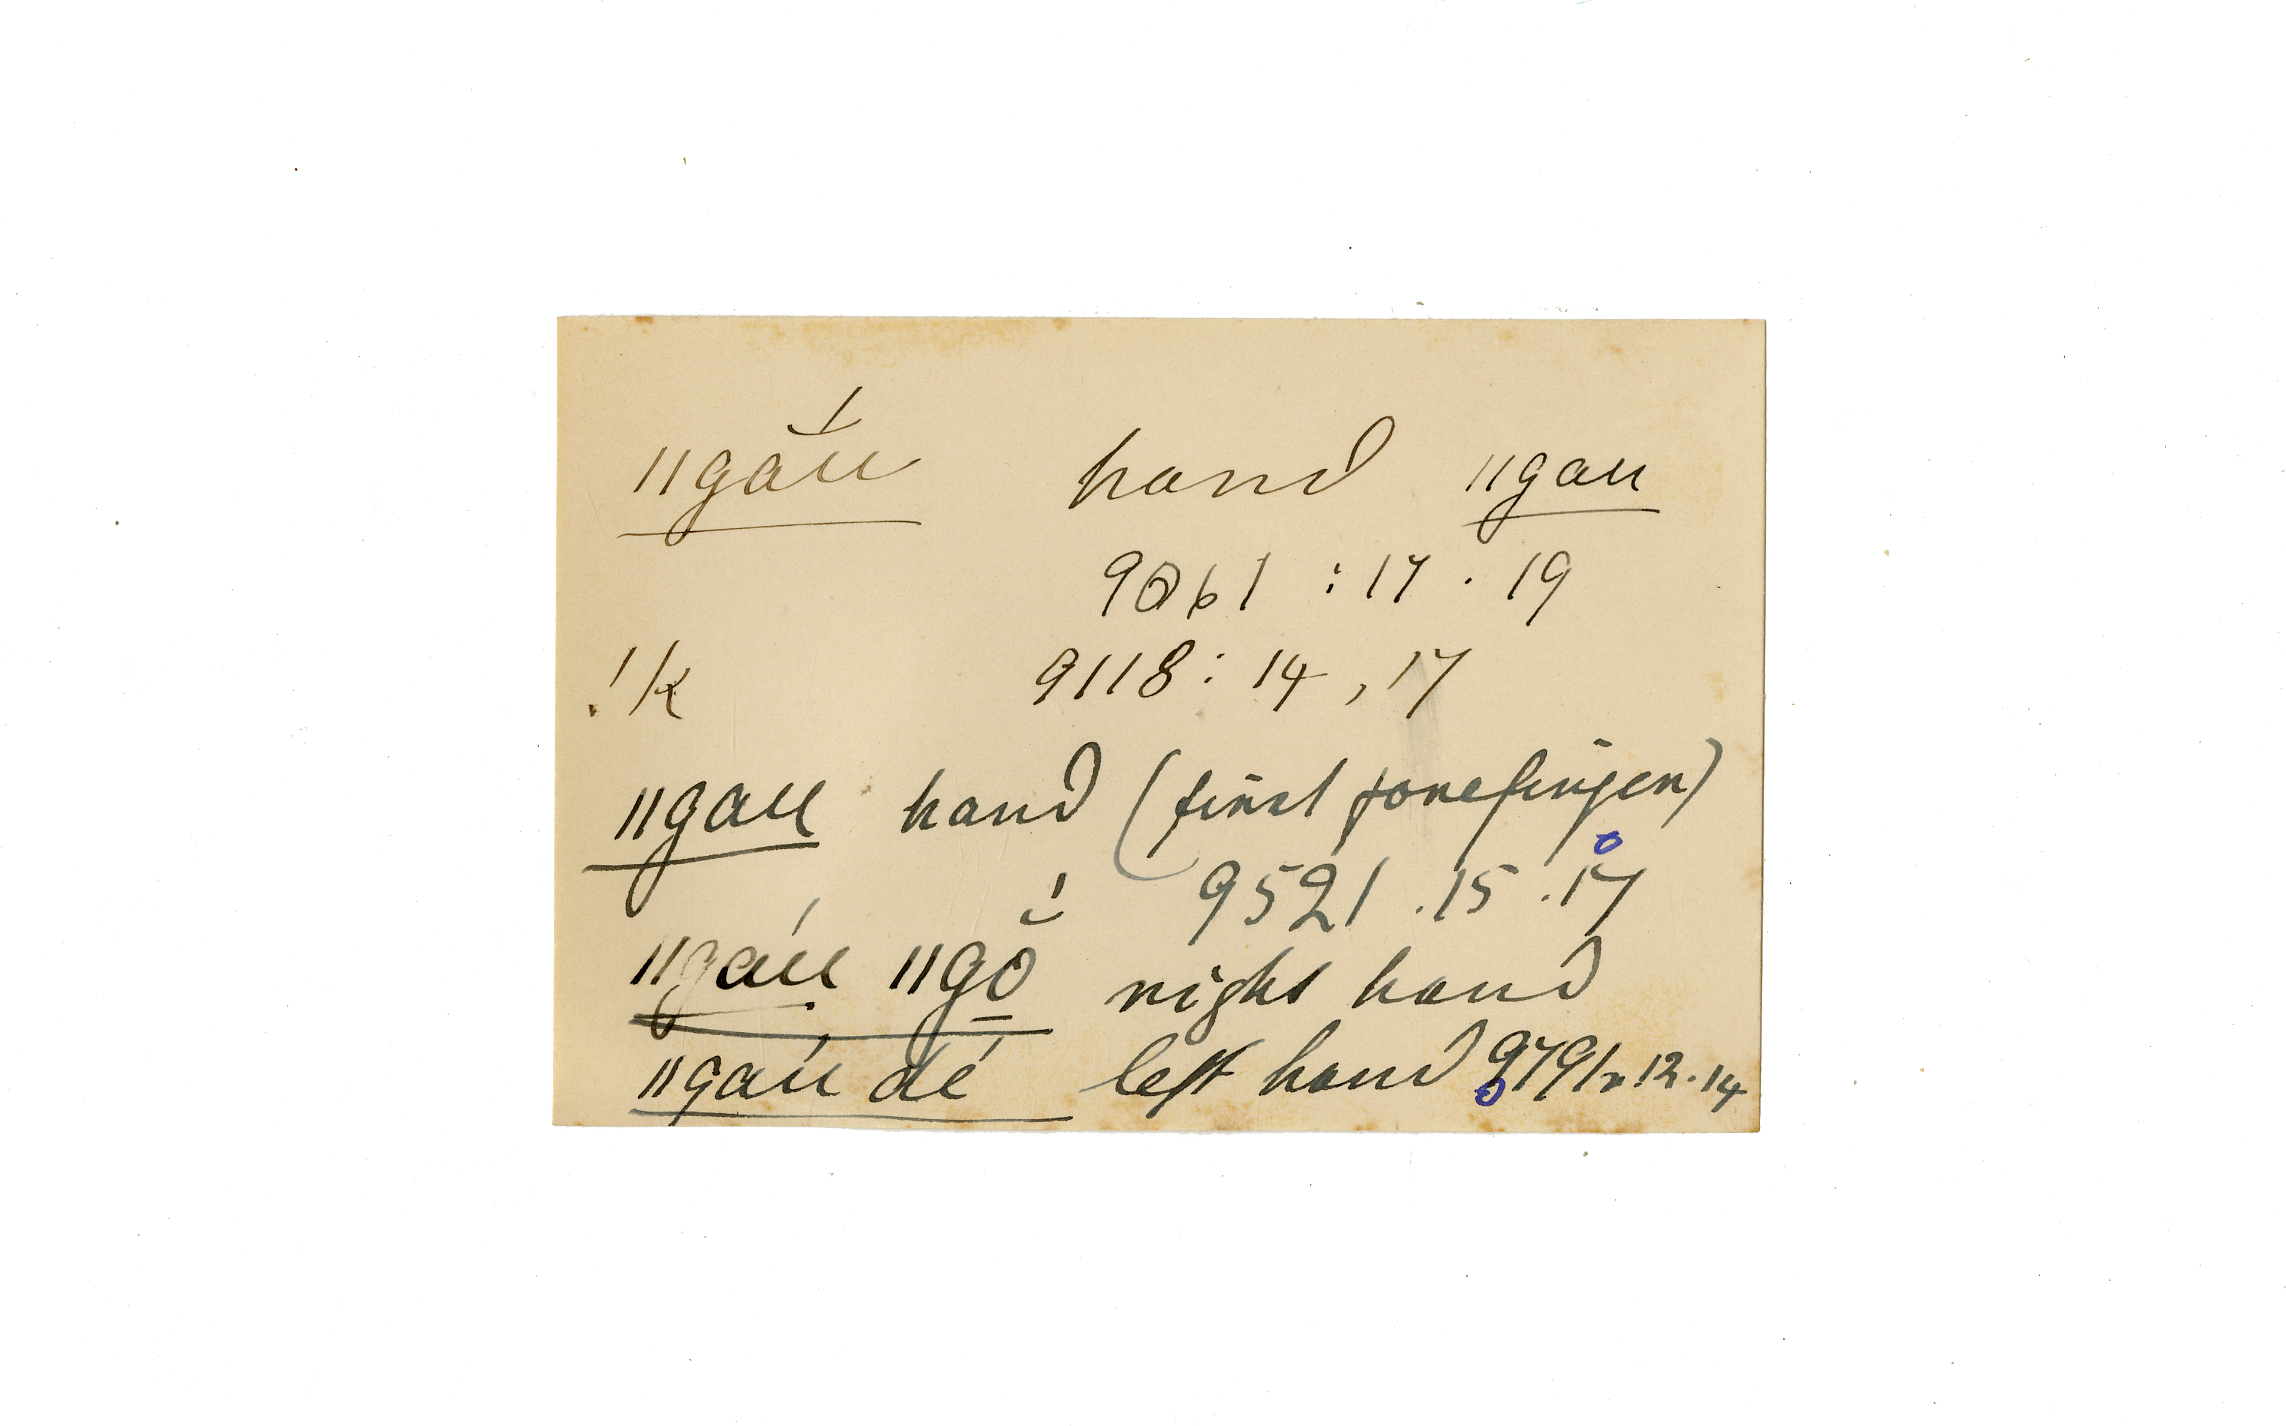 ǁgắu hand ǁgau
9061 : 17 . 19
!k 9118 : 14 , 17
ǁgau hand (first forefinger)
9521 . 15 . 17
ǁgáu ǁgŏ̱́ right hand
ǁgáu dé left hand 9791 . 12 . 14